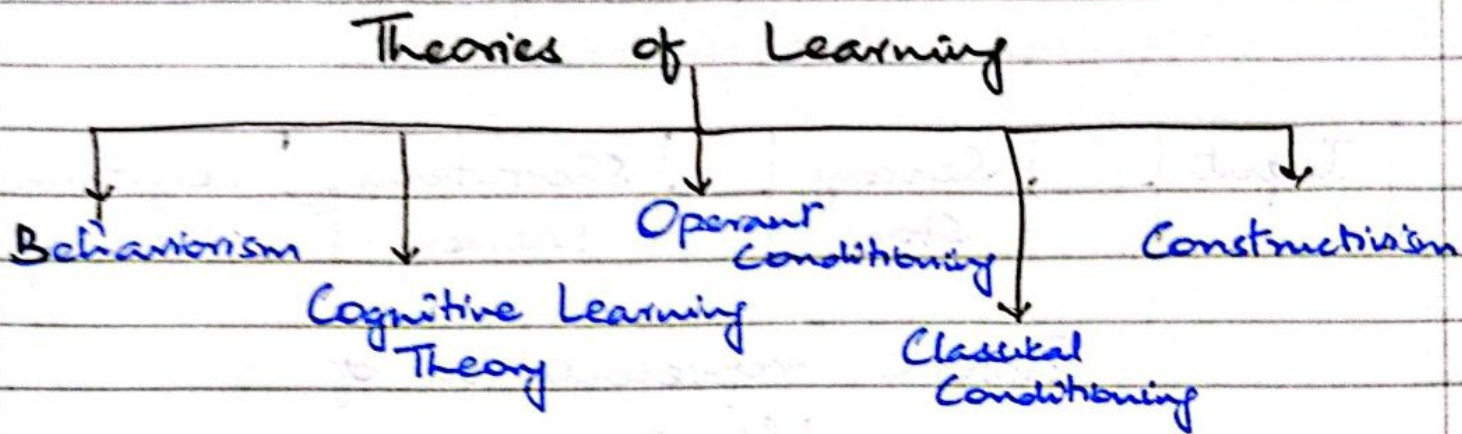 Theories of Learning
Behaviorism
Cognitive Learning
Theory
Operant
Conditioning
Classical
Conditioning
Constructivism